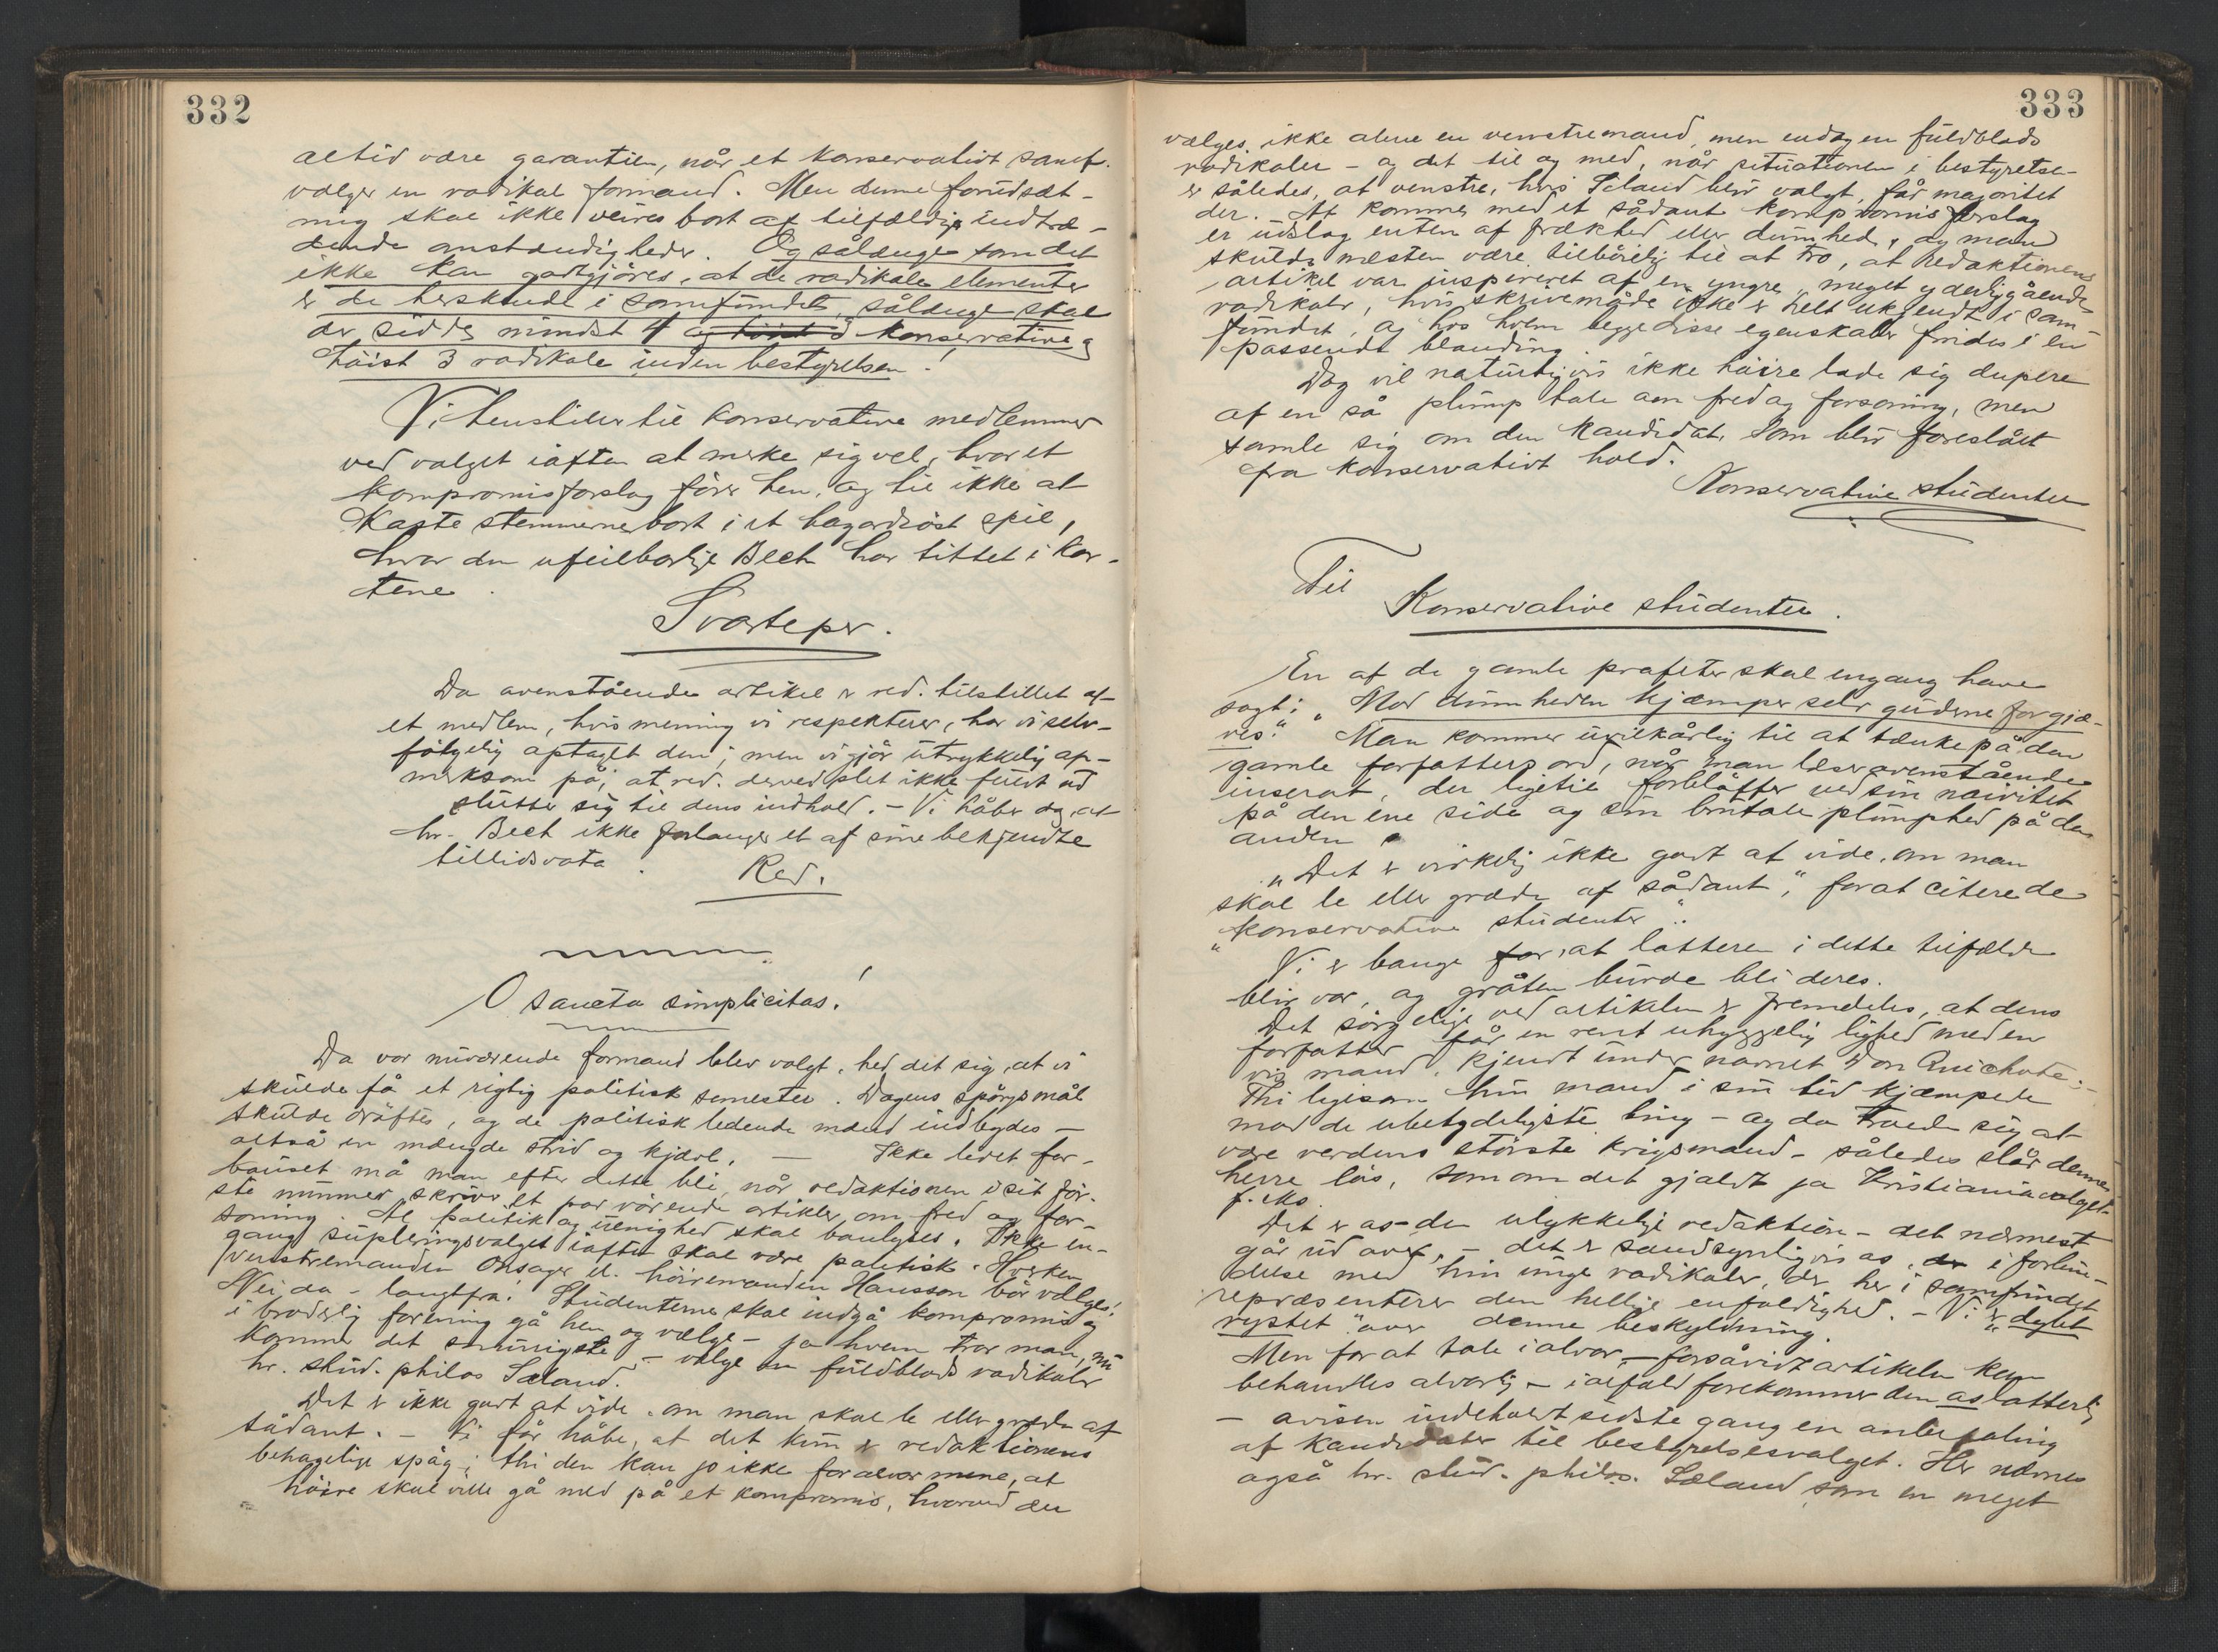 332
altid være garantien, når et konservativt samf.
vælger en radikal formand. Men denne forudsæt-
ning skal ikke veires bort af tilfældig indtræ-
dende omstændigheder. Og sålænge som det
ikke kan godtgjöres, at de radikale elementer
er de herskende i samfundet, sålænge skal
der sidde mindst 4 og höist 3 konservative og
höist 3 radikale inden bestyrelsen!
Vi henstiller til konservative medlemmer
ved valget iaften at merke sig vel, hvor et
kompromisforslag förer hen, og til ikke at
kaste stemmerne bort i et hazardiöst spil,
hvor den ufeilbarlige Bech har tittet i kor-
tene.
Svarteper.
Da ovenstående artikel er red. tilstillet af
et medlem, hvis mening vi respekterer, har vi selv-
fölgelig optaget den; men vi gjör utrykkelig op-
merksom på, at red. derved slet ikke fuldt ud
slutter sig til dens indhold. – Vi håber og, at
hr. Bech ikke forlanger et af sine bekjendte
tillidsvota.
Red.
O sancta simplicitas!
Da vor nuværende formand blev valgt, hed det sig, at vi
skulde få et rigtig politisk semester. Dagens spörgsmål
skulde dröftes, og de politisk ledende mænd indbydes –
altså en mængde strid og kjævl. – Ikke lidet for-
bauset må man efter dette bli, når redaktionen i sit för-
ste nummer skriver et par rörende artikler om fred og for-
soning. Al politik og uenighed skal banlyses. Ikke en-
gang supleringsvalget iaften skal være politisk. Hverken
venstremanden Onsager el. höiremanden Hansson bör vælges!
Nei da – langtfra! Studenterne skal indgå kompromis og
i broderlig forening gå hen og vælge – ja hvem tror man, nu
kommer det snurrigste – vælge en fuldblods radikaler
hr. stud. philos Sæland.
Det er ikke godt at vide, om man skal le eller græde af
sådant. – Vi får håbe, at det kun er redaktionens
behagelige spög; thi den kan jo ikke for alvor mene, at
höire skal ville gå med på et kompromis, hvorved der
333
vælges ikke alene en venstremand, men endog en fuldblods
radikaler – og det til og med, når situationen i bestyrelse-
er således, at venstre, hvis Sæland blir valgt, får majoritet
der. At komme med et sådant kompromisforslag
er udslag enten af frækhed eller dumhed, og man
skulde næsten være tilböielig til at tro, at redaktionens
artikel var inspireret af en yngre, meget yderliggående
radikaler, hvis skrivemåde ikke er helt ukjendt i sam-
fundet, og hos hvem begge disse egenskaber findes i en
passende blanding.
Dog vil naturligvis ikke höire lade sig dupere
af en så plump tale om fred og forsoning, men
samle sig om den kandidat, som blir foreslået
fra konservativt hold.
Konservative studenter
Til
Konservative studenter.
En af de gamle profeter skal engang have
sagt: „Mod dumheden kjæmper selv guderne forgjæ-
ves." Man kommer uvilkårlig til at tænke på den
gamle forfatters ord, når man læser ovenstående
inserat, der ligetil forblöffer ved sin naivitet
på den ene side og sin brutale plumphed på den
anden.
„Det er virkelig ikke godt at vide, om man
skal le eller græde af sådant," for at citere de
"konservative studenter".
Vi er bange for, at latteren i dette tilfælde
blir vor, og gråten burde bli deres.
Det sörgelige ved artikelen er fremdeles, at dens
forfatter får en rent uhyggelig lighed med en
vis mand, kjendt under navnet Don Quichote: –
Thi ligesom hin mand i sin tid kjæmpede
mod de ubetydeligste ting – og da troede sig at
være verdens störste krigsmand – således slår denne
herre lös, som om det gjaldt ja Kristianiavalget
f. eks.
Det er os – den ulykkelige redaktion – det nærmest
går ud over, – det er sandsynligvis os, der i forbin-
delse med hin unge radikaler, der her i samfundet
repræsenterer den hellige enfoldighed. – Vi er „dybt
rystet" over denne beskyldning.
Men for at tale i alvor, – forsåvidt artikelen kan
behandles alvorlig – ialfald forekommer den os latterlig
– avisen indeholdt sidste gang en anbefaling
af kandidater til bestyrelsesvalget. Her nævnes
også hr. stud. philos. Sæland som en meget